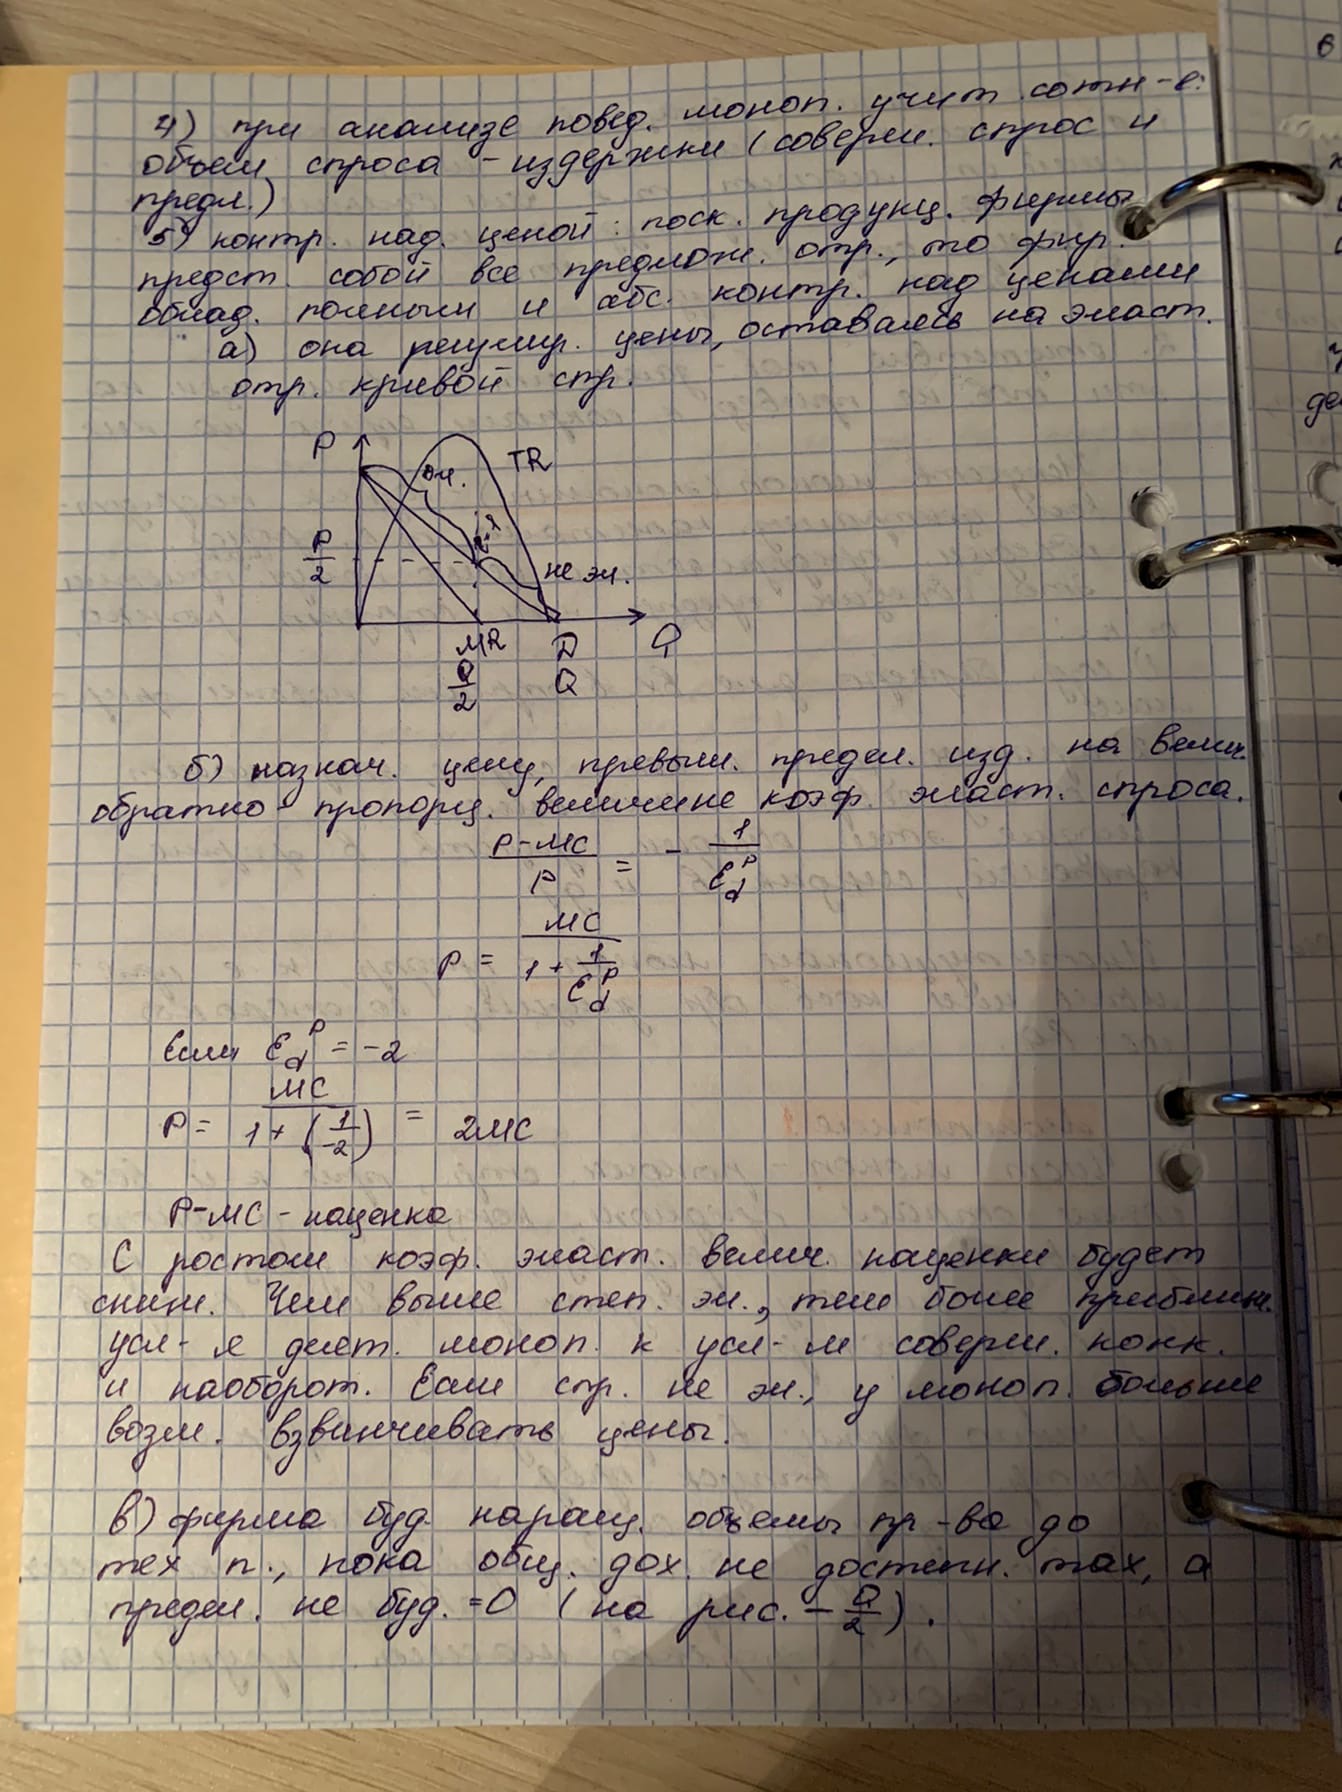 4) при анализе повед. моноп. учит. сотн-е:
объем спроса - издержки (соверш. спрос и
предл.)
5) контр. над. ценой: поск. продукц. фирмы
предст. собой все предлож. отр., то фир.
облад. полным и абс. контр. над ценами
а) она регулир. цены, оставаясь на эласт.
отр. кривой спр.
P
эл.
TR
P/2
не эл.
MR D Q
Q/2 Q
б) назнач. цену, превыш. предел. изд. на велич.
обратно пропорц. величине коэф. эласт. спроса.
(P-MC)/P = - 1/E_d^P
P = MC/(1 + 1/E_d^P)
Если E_d^P = -2
P = MC/(1 + (1/-2)) = 2MC
P-MC - наценка
С ростом коэф. эласт. велич. наценки будет
сниж. Чем выше степ. эл., тем более приближ.
усл-я деят. моноп. к усл-м соверш. конк.
и наоборот. Если спр. не эл., у моноп. больше
возм. взвинчивать цены.
в) фирма буд. наращ. объемы пр-ва до
тех п., пока общ. дох. не достигн. max, а
предел. не буд. =0 (на рис. - Q/2).